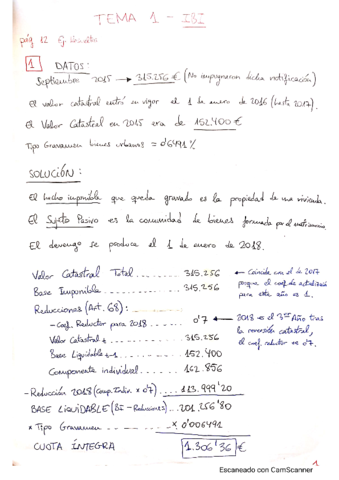 TEMA 1 - IBI
pág 12 Ej. resuelto
1 DATOS:
Septiembre 2015 → 315.256 € (No impugnaron dicha notificación)
El valor catastral entró en vigor el 1 de enero de 2016 (hasta 2017).
El Valor Catastral en 2015 era de 152.400 €
Tipo Gravamen bienes urbanos = 0'6491 %
SOLUCIÓN:
El hecho imponible que queda gravado es la propiedad de una vivienda.
El Sujeto Pasivo es la comunidad de bienes formada por el matrimonio.
El devengo se produce el 1 de enero de 2018.
Valor Catastral Total ........ 315.256 ← Coincide con el de 2017
Base Imponible ........ 315.256 porque el coef. de actualización
para este año es 1.
Reducciones (Art. 68):
- Coef. Reductor para 2018 ...... 0'7 ← 2018 es el 3er Año tras
Valor Catastral ........ 315.256 la revisión catastral,
Base Liquidable ...... 152.400 el coef. reductor es 0'7.
Componente individual ..... 162.856
- Reducción 2018 (Comp. Indiv. x 0'7) .... 113.999'20
BASE LIQUIDABLE (BI - Reducciones) ... 201.256'80
* Tipo Gravamen ........ x 0'006491
CUOTA ÍNTEGRA 1.306'36 €
1
Escaneado con CamScanner